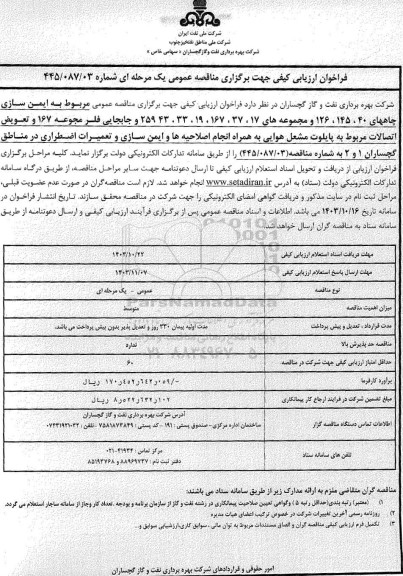 شرکت ملی نفت ایران
شرکت ملی مناطق نفتخیز جنوب
شرکت بهره برداری نفت و گاز گچساران « سهامی خاص »
فراخوان ارزیابی کیفی جهت برگزاری مناقصه عمومی یک مرحله ای شماره ۴۴۵/۰۸۷/۰۳
شرکت بهره برداری نفت و گاز گچساران در نظر دارد فراخوان ارزیابی کیفی جهت برگزاری مناقصه عمومی مربوط به ایمن سازی
چاههای ۴۰ ، ۱۴۵ ، ۱۲۶ و مجموعه های ۱۷ ، ۳۷ ، ۱۶۷ ، ۱۹ ، ۳۳ ، ۴۳ ، ۲۵۹ و جابجایی فلر مجموعه ۱۶۷ و تعویض
اتصالات مربوط به پایلوت مشعل هوایی به همراه انجام اصلاحیه ها و ایمن سازی و تعمیرات اضطراری در مناطق
گچساران ۱ و ۲ به شماره مناقصه(۴۴۵/۰۸۷/۰۳) را از طریق سامانه تدارکات الکترونیکی دولت برگزار نماید. کلیه مراحل برگزاری
فراخوان ارزیابی از دریافت و تحویل اسناد استعلام ارزیابی کیفی تا ارسال دعوتنامه جهت سایر مراحل مناقصه، از طریق درگاه سامانه
تدارکات الکترونیکی دولت (ستاد) به آدرس www.setadiran.ir انجام خواهد شد. لازم است مناقصه‌گران در صورت عدم عضویت قبلی،
مراحل ثبت نام در سایت مذکور و دریافت گواهی امضای الکترونیکی را جهت شرکت در مناقصه محقق سازند. تاریخ انتشار فراخوان در
سامانه تاریخ ۱۴۰۳/۱۰/۱۶ می باشد. اطلاعات و اسناد مناقصه عمومی پس از برگزاری فرآیند ارزیابی کیفی و ارسال دعوتنامه از طریق
سامانه ستاد به مناقصه گران ارسال خواهد شد.
مهلت دریافت اسناد استعلام ارزیابی کیفی ۱۴۰۳/۱۰/۲۲
مهلت ارسال پاسخ استعلام ارزیابی کیفی ۱۴۰۳/۱۱/۰۷
نوع مناقصه عمومی - یک مرحله ای
میزان اهمیت مناقصه متوسط
مدت قرارداد ، تعدیل و پیش پرداخت مدت اولیه پیمان ۳۳۰ روز و تعدیل پذیر بدون پیش پرداخت می باشد.
مناقصه حد پذیرش بالا ندارد
حداقل امتیاز ارزیابی کیفی جهت شرکت در مناقصه ۶۰
برآورد کارفرما ریال
مبلغ تضمین شرکت در فرایند ارجاع کار پیمانکاری ریال
اطلاعات تماس دستگاه مناقصه گزار آدرس شرکت بهره برداری نفت و گاز گچساران
ساختمان اداره مرکزی- صندوق پستی : ۱۹۱ - کد پستی : ۷۵۸۱۸۷۳۸۴۹ - تلفن : ۰۷۴۳۱۹۲۱۰۳۲
تلفن های سامانه ستاد مرکز تماس : ۴۱۹۳۴-۰۲۱
دفتر ثبت نام : ۸۸۹۶۹۷۳۷ و ۸۵۱۹۳۷۶۸
مناقصه گران متقاضی ملزم به ارائه مدارک زیر از طریق سامانه ستاد می باشند:
۱) (معتبر) رتبه بندی(حداقل رتبه ۵ ) وگواهی تعیین صلاحیت پیمانکاری در رشته نفت و گاز از سازمان برنامه و بودجه .تعداد کار وجاز از سامانه ساجار استعلام می گردد.
۲) روزنامه رسمی آخرین تغییرات شرکت در خصوص ترکیب اعضای هیات مدیره
۳) تکمیل فرم ارزیابی کیفی مناقصه گران و الصاق مستندات مربوط به توان مالی ، سوابق کاری،ارزشیابی سوابق و...
امور حقوقی و قراردادهای شرکت بهره برداری نفت و گاز گچساران